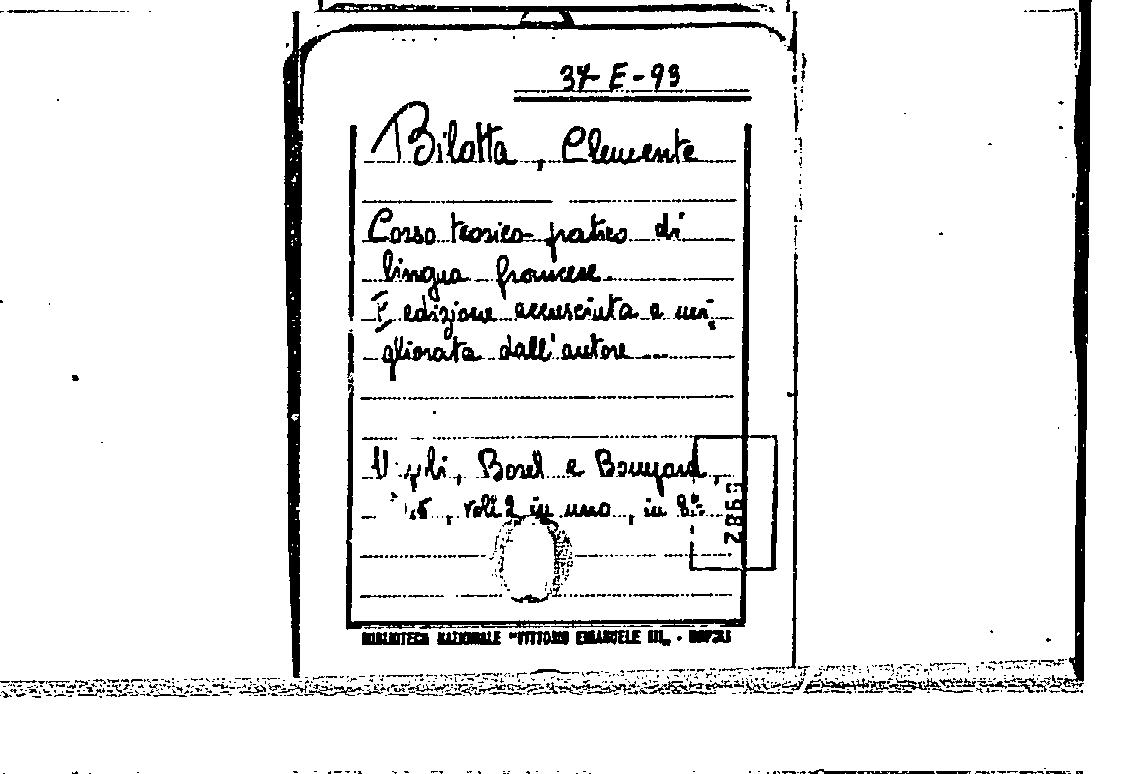 37-E-93
Bilotta, Clemente
Corso teorico-pratico di
lingua francese.
edizione accresciuta e mi-
gliorata dall'autore ...
Borel e Bompard,
voll 2 in uno, in 8º
2869
BIBLIOTECA NAZIONALE "VITTORIO EMANUELE III" - NAPOLI